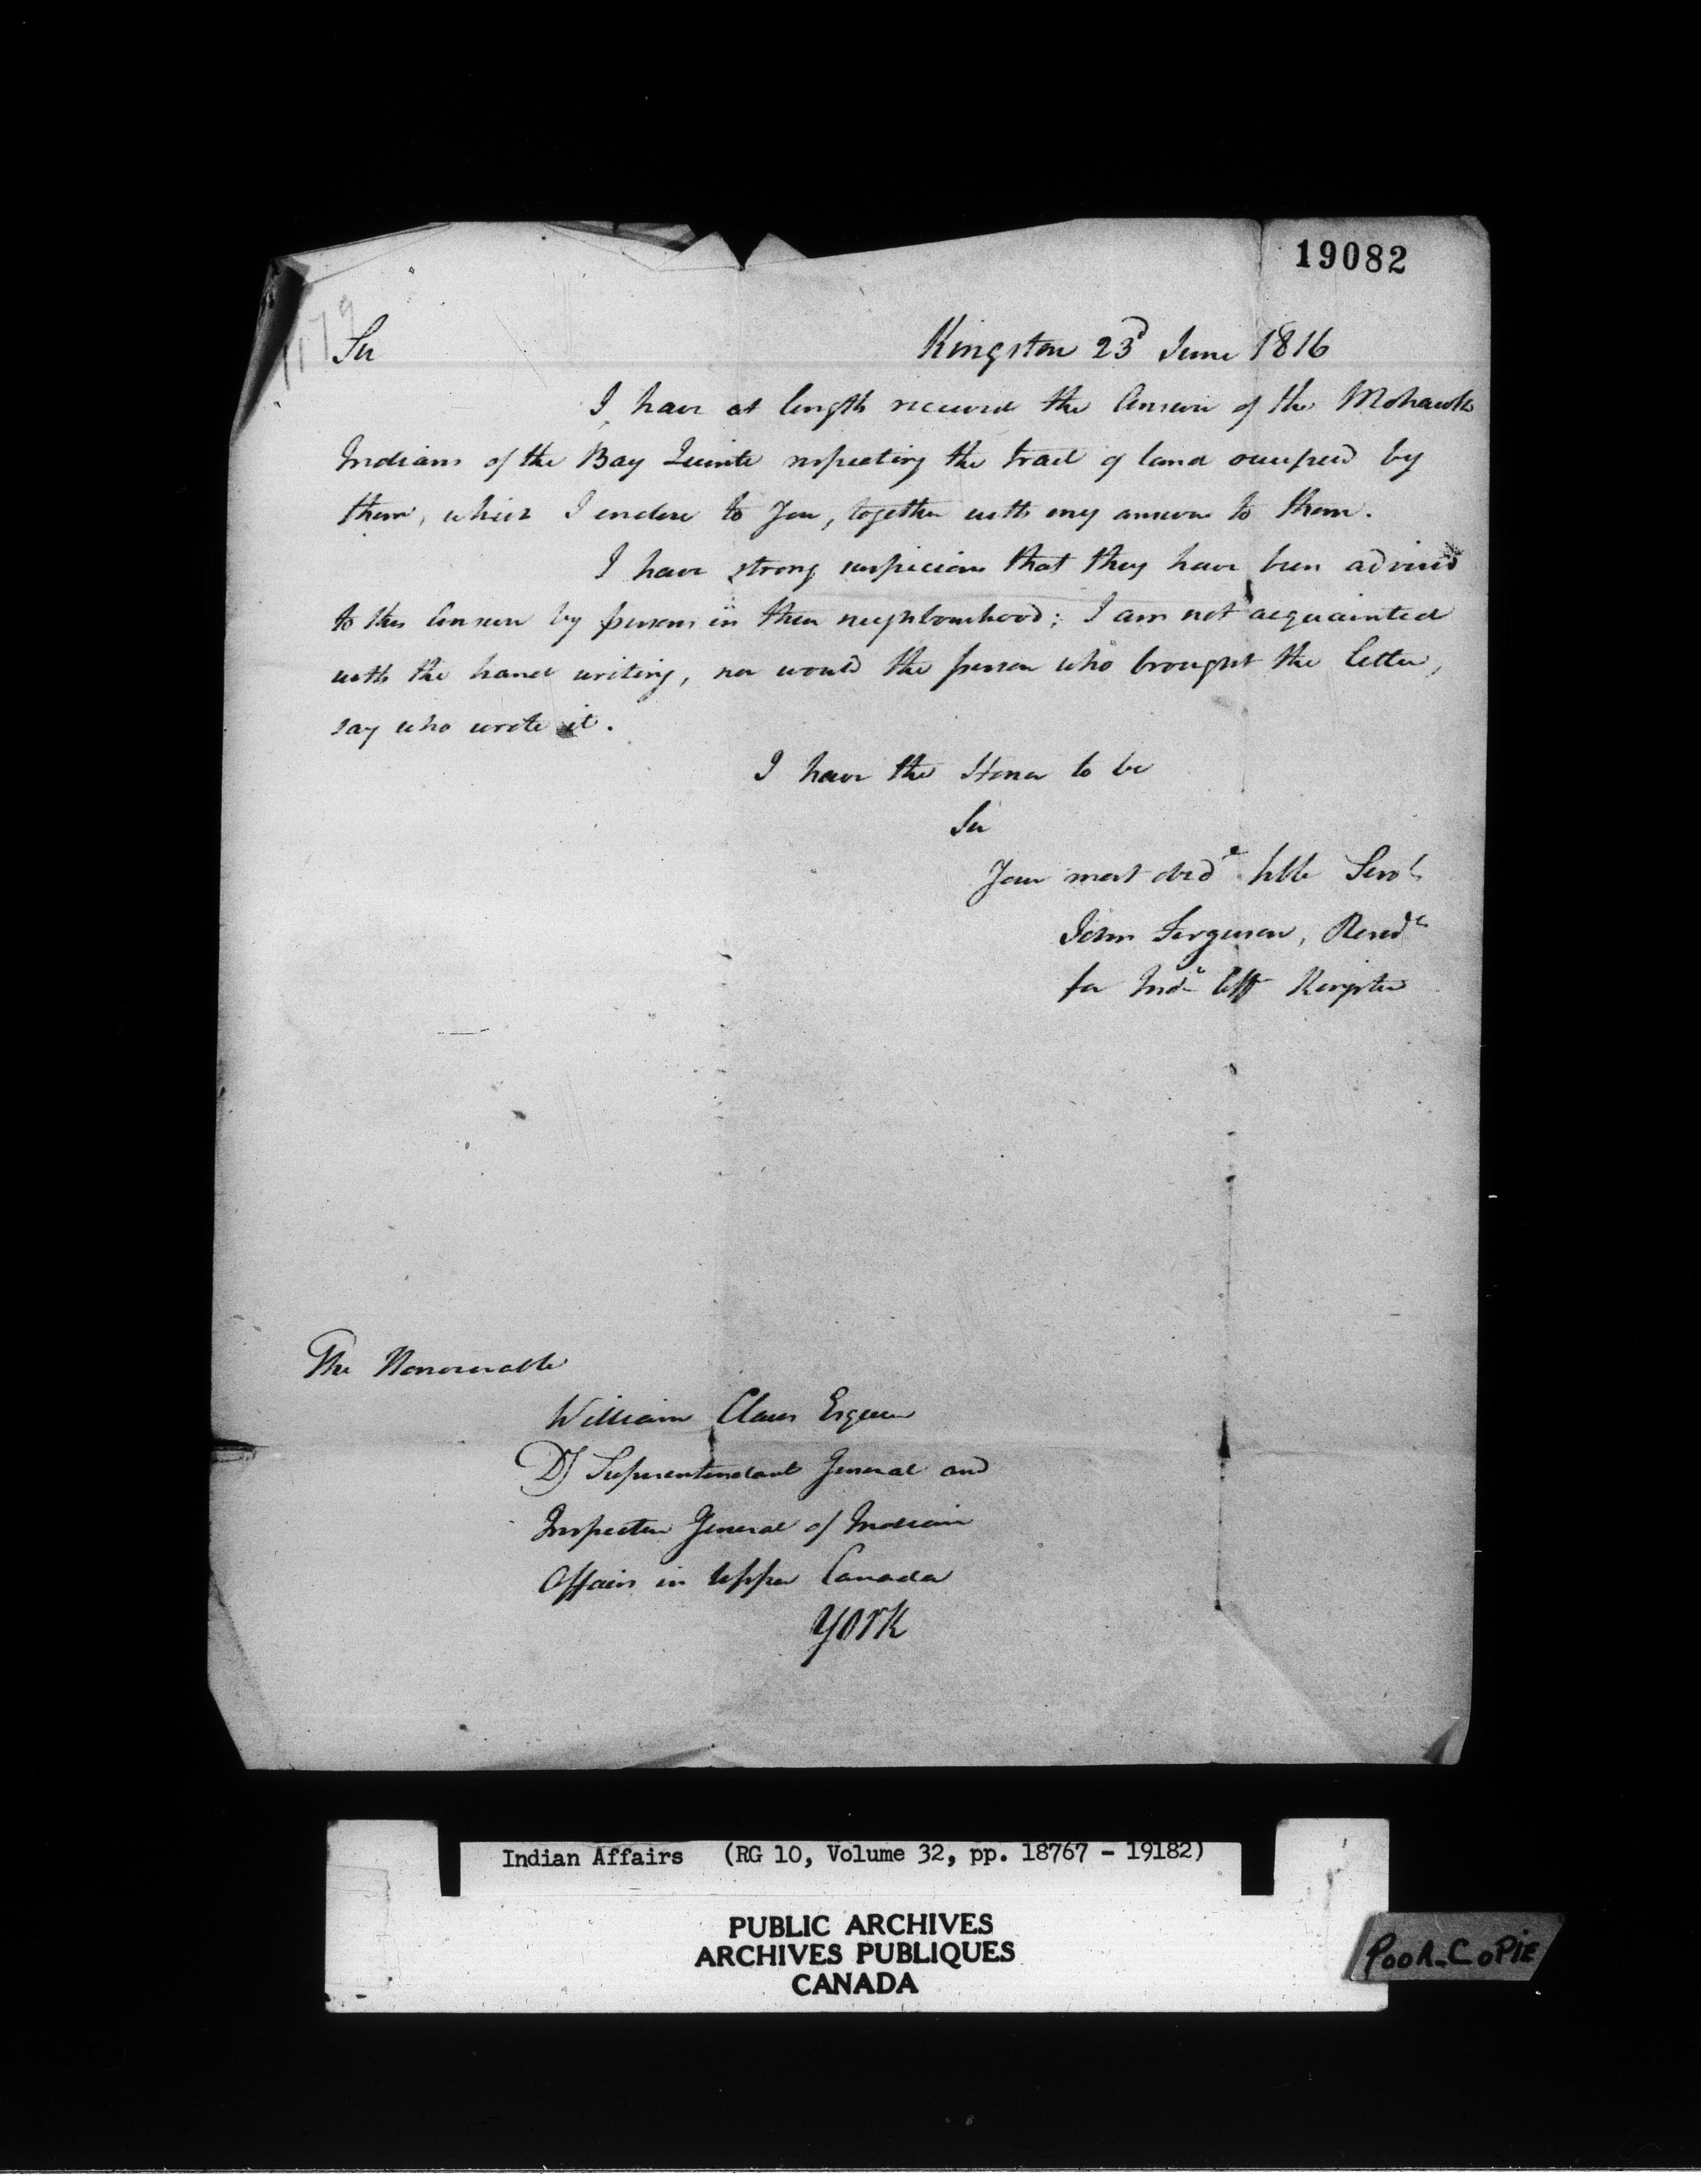 19082
1179
Sir
Kingston 23d June 1816
I have at length received the Answer of the Mohawk
Indians of the Bay Quinte respecting the tract of land occupied by
them, which I enclose to You, together with my answer to them.
I have strong suspicions that they have been advised
to this Answer by persons in their neighbourhood; I am not acquainted
with the hand writing, nor would the person who brought the letter,
say who wrote it.
I have the Honor to be
Sir
Your most obedt hble Servt
John Ferguson, Residt
for Indn Aff Kingston
The Honourable
William Claus Esquire
Dy Superentendant General and
Inspector General of Indian
Affairs in Upper Canada
York
Indian Affairs (RG 10, Volume 32, pp. 18767 - 19182)
PUBLIC ARCHIVES
ARCHIVES PUBLIQUES
CANADA
POOR-COPIE